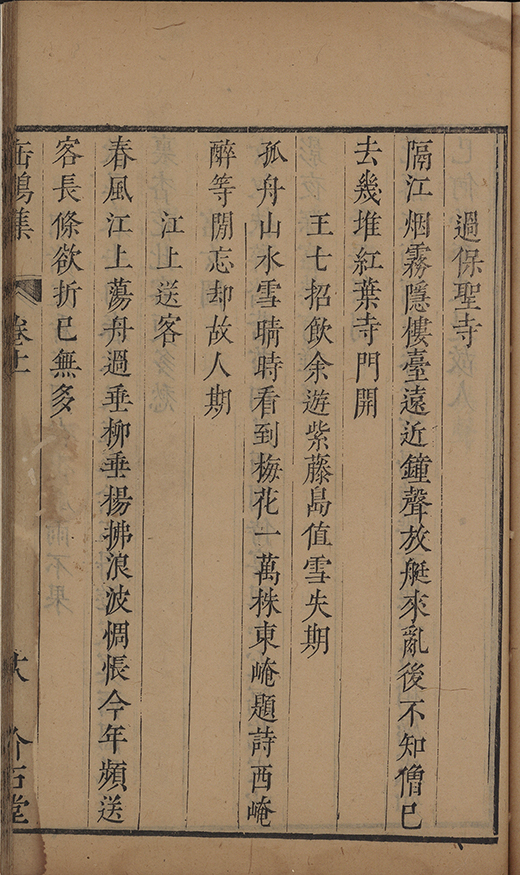 過保聖寺
隔江烟霧隱樓臺遠近鐘聲放艇來亂後不知僧已
去幾堆紅葉寺門開
王七招飲余遊紫藤島值雪失期
孤舟山水雪晴時看到梅花一萬株東崦題詩西崦
醉等閒忘却故人期
江上送客
春風江上蕩舟過垂柳垂楊拂浪波惆悵今年頻送
客長條欲折已無多
鶴集
卷十一
介石堂